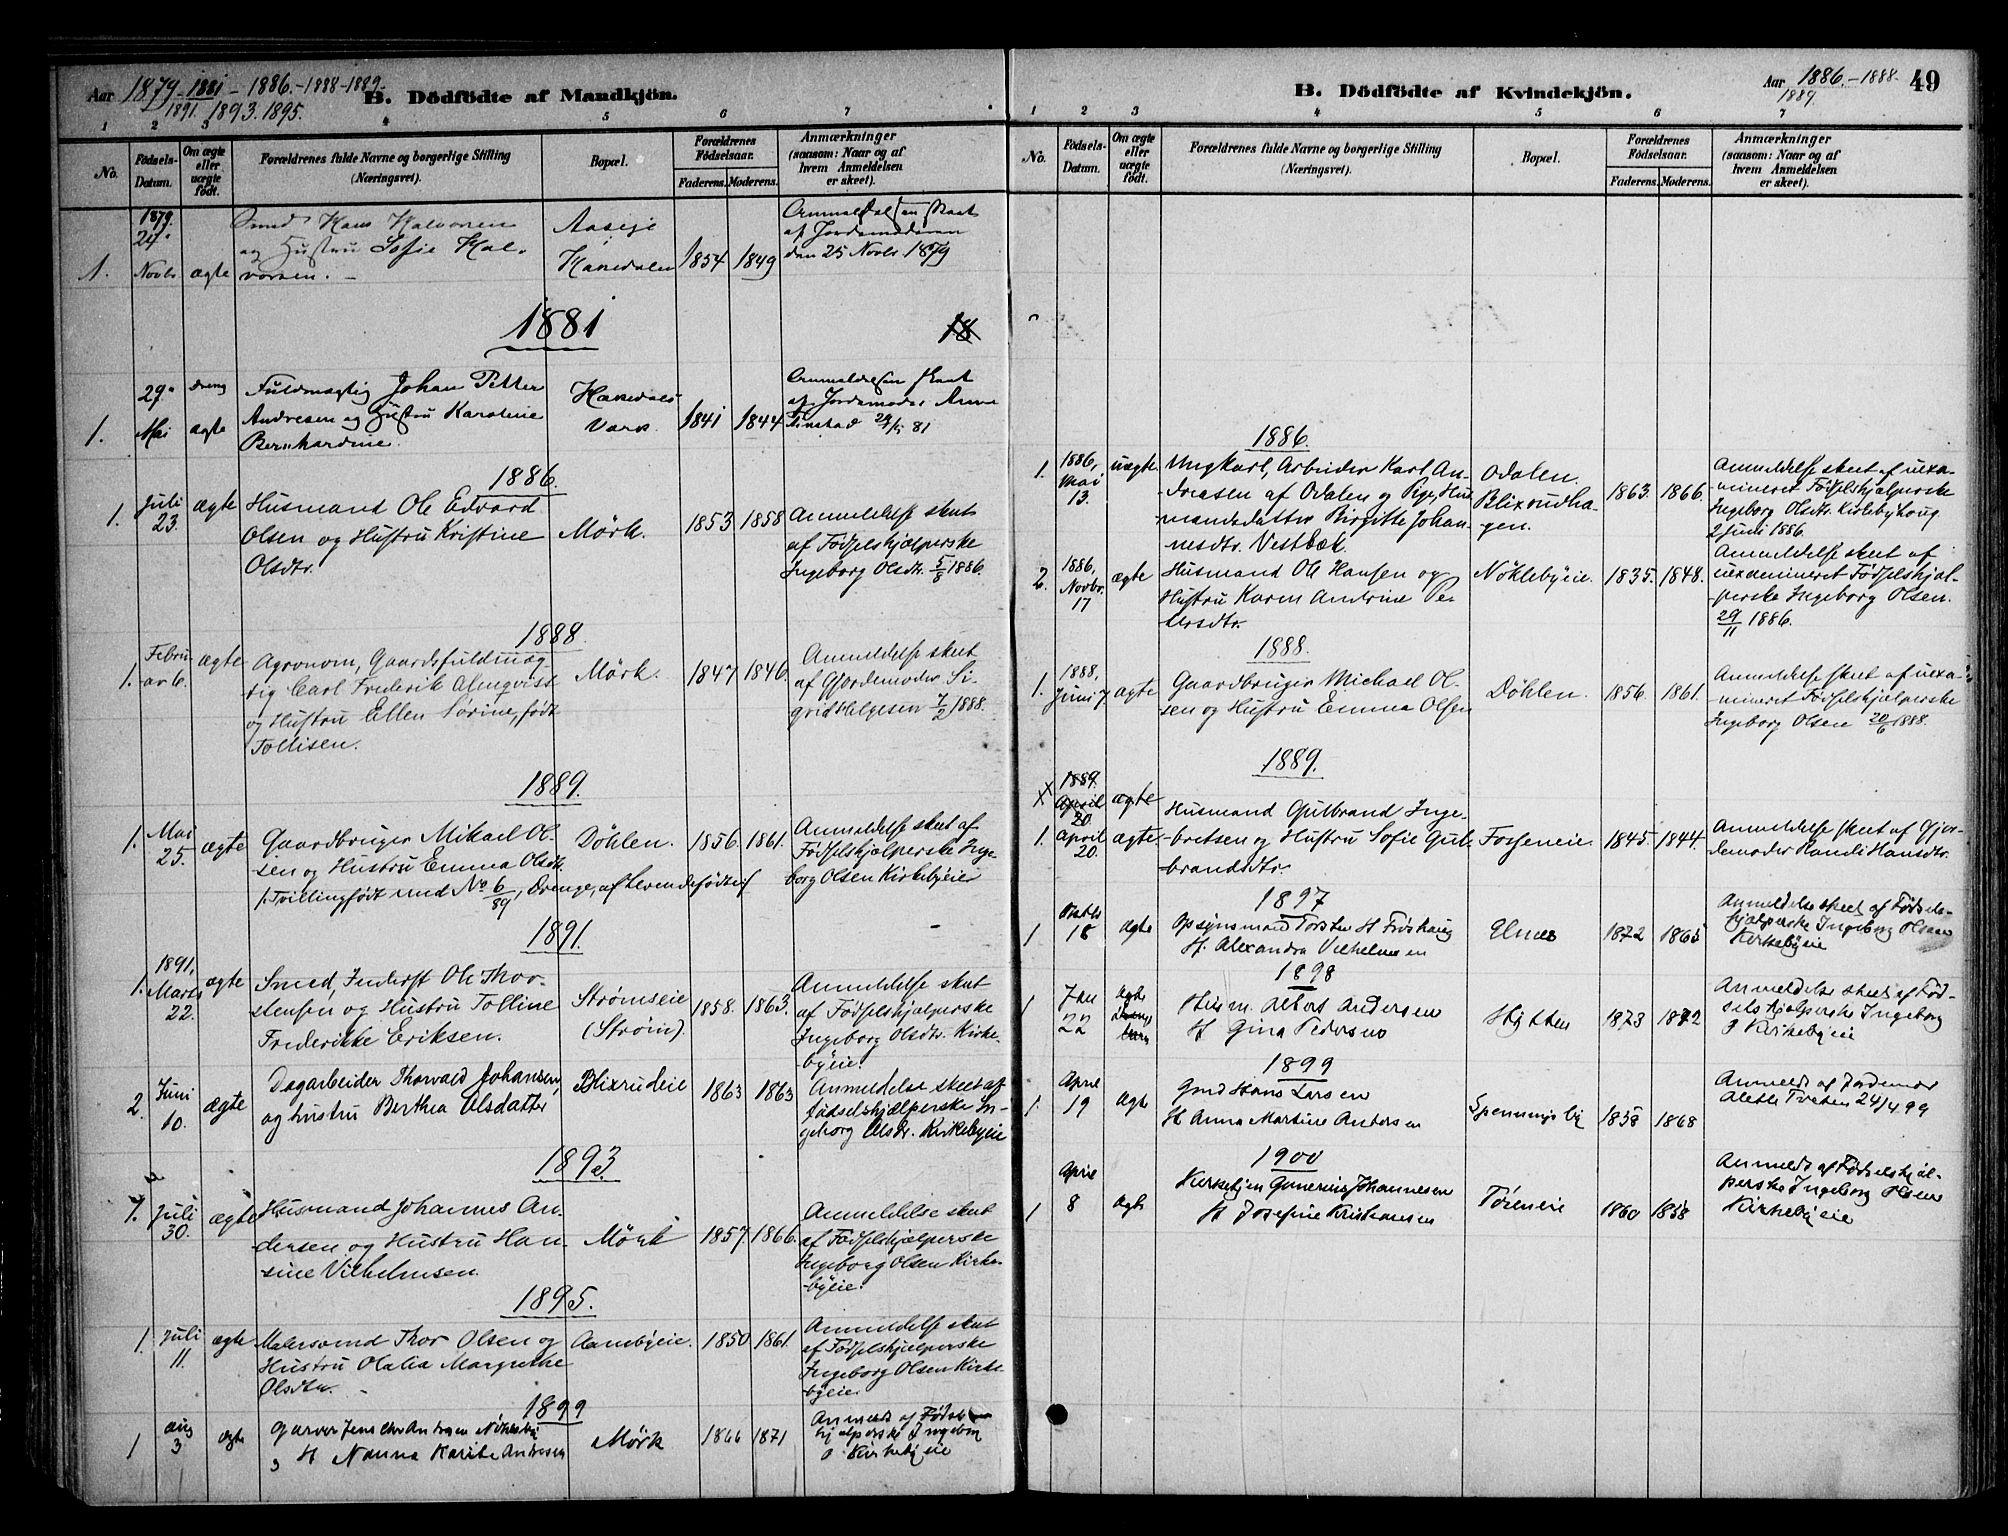 Aar 1879 - 1881 - 1886. - 1888 - 1889.
1891. 1893. 1895.
B. Dödfödte af Mandkjön.
1 2 3 4 5 6 7
No.
Födsels-Datum.
Om ægte eller uægte födt.
Forældrenes fulde Navne og borgerlige Stilling
(Næringsvei).
Bopæl.
Forældrenes Födselsaar.
Faderens. Moderens.
Anmærkninger
(saasom: Naar og af
hvem Anmeldelsen
er skeet).
1879
24.
Novbr
1. ægte
Smed Hans Halvorsen
og Hustru Sofie Hal-
vorsen.
1854 1849
af Jordemoderen
den 25 Novbr 1879
1881
18
29.
Mai
1. ægte
Fuldmægtig Johan Petter
Andresen og Hustru Karoline
Bernhardine.
1841 1844
1886.
1. Juli
23. ægte
Husmand Ole Edvard
Olsen og Hustru Kristine
Olsdtr.
Mörk. 1853 1858
Anmeldelse skeet
af Födselshjælperske
Ingeborg Olsdtr. 5/8 1886.
1888.
1. Febru-
ar 6. ægte
Agronom, Gaardsfuldmæg-
tig Carl Frederik Almqvist
og Hustru Ellen Sørine, født
Tollisen.
Mörk. 1847 1846.
Anmeldelse skeet
af Gjordemoder Si-
grid Helgesen 7/2 1888.
1889.
1. Mai
25. ægte
Gaardbruger Mikael Ol-
sen og Hustru Emma Olsdtr.
(Tvillingfödt med No 6/89, Drenge, af levendefödte)
Döhlen. 1856. 1861.
Anmeldelse skeet af
Födselshjælperske Inge-
borg Olsen Kirkebyeie
1891.
1. 1891,
Marts
22. ægte
Smed, Inderst Ole Thor-
stensen og Hustru Tolline
Frederikke Eriksen.
Strömseie
(Ström).
1858. 1863.
Anmeldelse skeet
af Födselshjælperske
Ingeborg Olsdtr. Kirke-
byeie.
2. Juni
10. ægte
Dagarbeider Thorvald Johansen,
og hustru Berthea Olsdatter
Blixrudeie 1863 1863
Anmeldelse skeet af
fødselshjælperske In-
geborg Olsdr. Kirkebyeie
1893.
1. Juli
30. ægte
Husmand Johannes An-
dersen og Hustru Han-
sine Vilhelmsen.
Mörk 1857. 1866.
Anmeldelse skeet
af Födselshjælperske
Ingeborg Olsen Kirke-
byeie.
1895.
1. Juli
11. ægte
Malersvend Thor Olsen og
Hustru Olalia Margrethe
Olsdtr.
Aambyeie. 1850 1861.
Anmeldelse skeet
af Födselshjælperske
Ingeborg Olsen Kirke-
byeie.
1899
1 Aug
3 ægte
Garver Jens
H Nanna Karite Andresen
Mörk 1866 1871
Anmeldt af Födsels-
hjælperske Ingeborg
O. Kirkebyeie
Aar 1886. - 1888.
1889.
49
B. Dödfödte af Kvindekjön.
1 2 3 4 5 6 7
No.
Födsels-Datum.
Om ægte eller uægte födt.
Forældrenes fulde Navne og borgerlige Stilling
(Næringsvei).
Bopæl.
Forældrenes Födselsaar.
Faderens. Moderens.
Anmærkninger
(saasom: Naar og af
hvem Anmeldelsen
er skeet).
1886.
1. 1886,
Mai
13. uægte
Ungkarl, Arbeider Karl An-
dreasen af Odalen og Pige, Hus-
mandsdatter Birgitte Johan-
nesdtr. Vestbæk.
Odalen.
Blixrudha-
gen.
1863. 1866.
Anmeldelse skeet af uexa-
mineret Födselshjælperske
Ingeborg Olsdtr. Kirkebyhoug
2 Juni 1886.
2. 1886,
Novbr.
17 ægte
Husmand Ole Hansen og
Hustru Karen Andrine Pe-
dersdtr.
Nöklebyeie. 1835. 1848.
Anmeldelse skeet af
uexamineret Födselshjæl-
perske Ingeborg Olsen.
29/11 1886.
1888.
1. 1888,
Juni 7 ægte
Gaardbruger Michael Ol-
sen og Hustru Emma Olsen
Döhlen. 1856. 1861.
Anmeldelse skeet af uexa-
mineret Födselshjælperske
Ingeborg Olsen 20/6 1888.
1889.
1889.
April
20 ægte
1. April
20. ægte
Husmand Gulbrand Inge-
bretsen og Hustru Sofie Gul-
brandsdtr.
Fosseneie. 1845. 1844.
Anmeldelse skeet af Gjor-
demoder Randi Hansdtr.
1897
1 18 ægte
Opsynsmand Torsten H Fröshaug
H. Alexandra Vilhelmsen
Elnes 1872 1865
Anmeldelse skeet af Födsels-
hjælperske Ingeborg Olsen
Kirkebyeie
1898
1 Jan
22 Ægte
Husm. Albert Andersen
H Gina Pedersen
Hytten 1873 1872
Anmeldelse skeet af Föd-
selshjælperske Ingeborg
O Kirkebyeie
1899
1. April
19 Ægte
Gmd Hans Larsen
H Anna Martine Andersen
Spenningsby 1858 1868
Anmeldt af Jordemor
Alette Tveten 24/4 99
1900
1 April
8 Ægte
Kirketjen Gunerius Johannesen
H Josefine Kristiansen
Töieneie 1860 1858
Anmeldt af Födselshjæl-
perske Ingeborg Olsen
Kirkebyeie